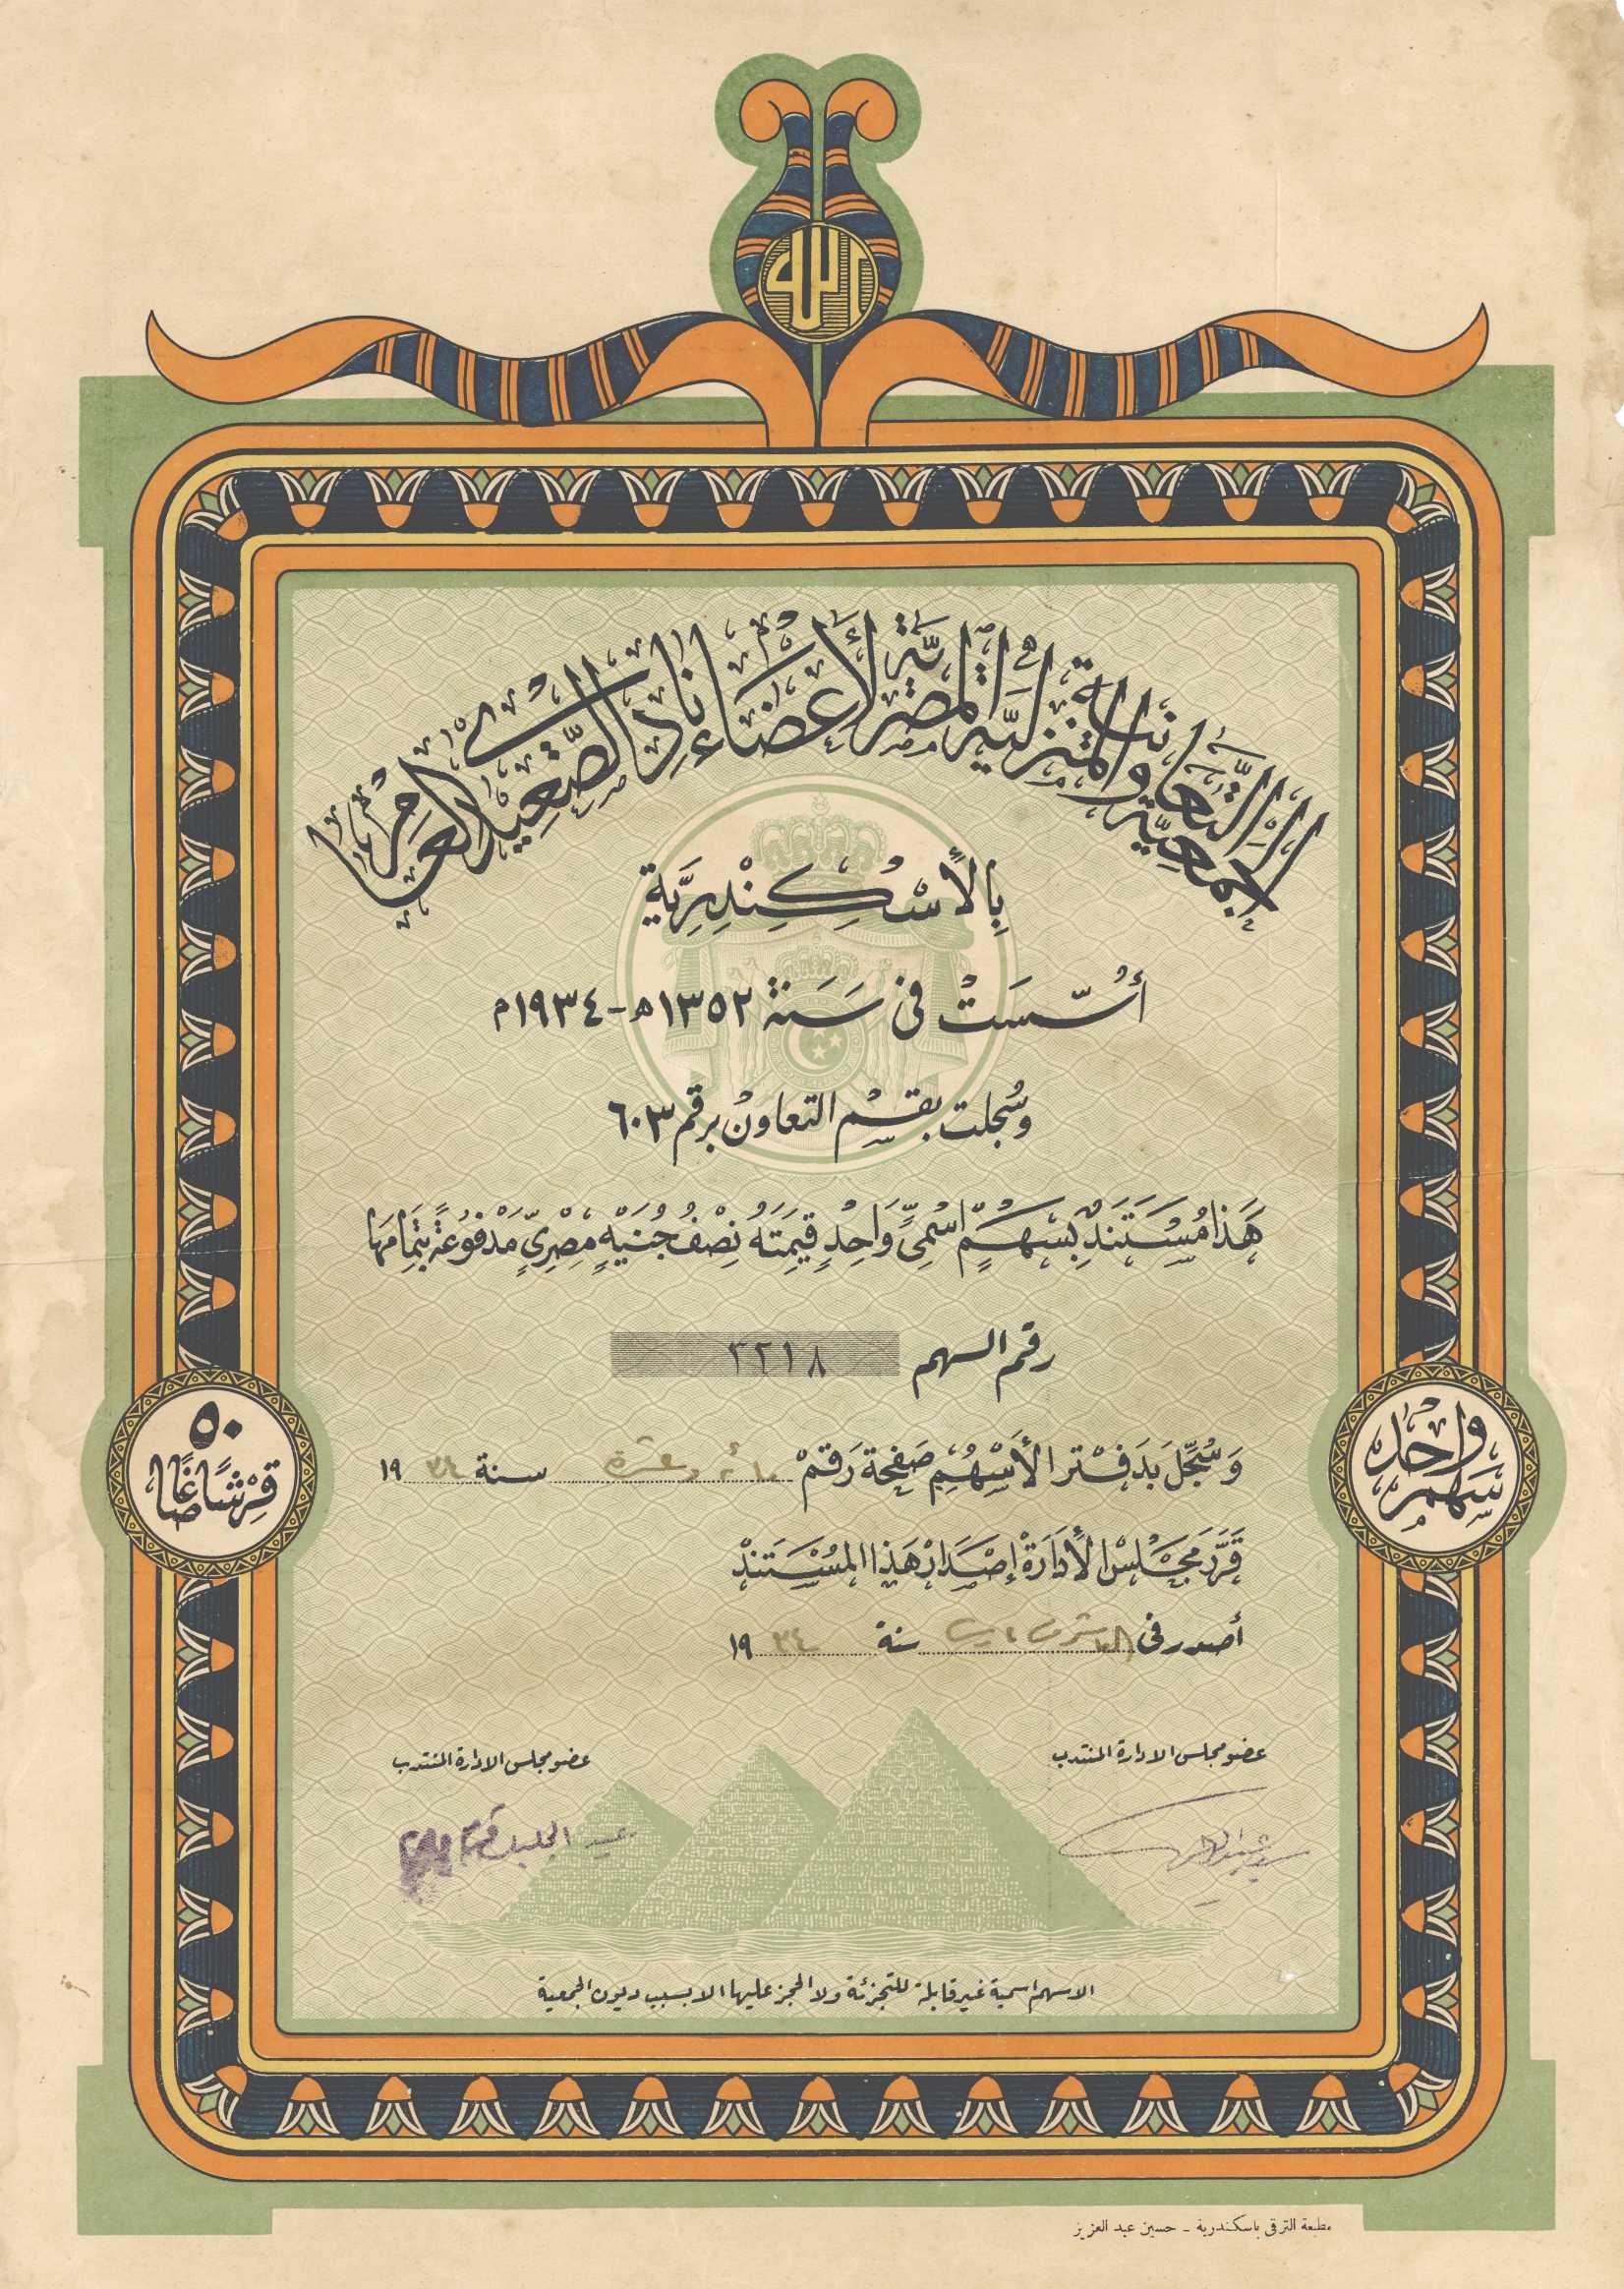 الله
الجمعية التعاونية المنزلية المصرية لأعضاء نادى الصعيد العام
بِالأسْكِنْدِرِيَّة
أُسّسَتْ فى سَنَة ١٣٥٢ه - ١٩٣٤م
وسُجلت بقسْم التعاونْ برقم ٦٠٣
هَذا مُسْتَندٌ بسَهْمٍ اسْمِىٍّ وَاحِدٍ قِيمَتَهُ نِصْفُ جُنَيْهٍ مِصْرِىٍّ مَدْفُوعَةً بِتَمَامِهَا
رقم السهم ٣٢١٨
وَسُجِّلَ بدَفْتر الأَسْهُمِ صَفْحَة رَقمْ مائة وعشرة سنة ١٩٣٤
قَرَّرَ مَجْلسُ الأدَارَةْ إصْدَارْ هَذا المُسْتَندْ
أصدر فى العاشر من مارس سنة ١٩٣٤
واحد
سهم
٥٠
قِرْشًا صَاغًا
عضو مجلس الادارة المنتدب
عضو مجلس الادارة المنتدب
عبد الجليل
الاسهم اسمية غير قابلة للتجزئة ولا الحجز عليها الا بسبب ديون الجمعية
مطبعة الترقى باسكندرية - حسين عبد العزيز